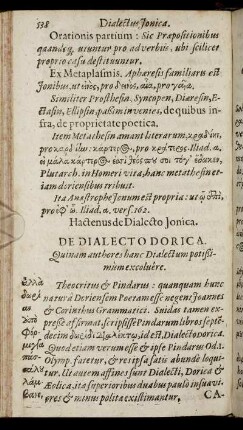 538 Dialectus Jonica.
Orationis partium: Sic Præpositionibus
quandoq; utuntur pro adverbiis, ubi scilicet
proprio casu destituuntur.
Ex Metaplasmis, Aphæresis familiaris est
Jonibus, ut
Similiter Prosthesin, Syncopen, Diæresin, E-
ctasin, Ellipsin passim invenies, de quibus in-
fra, de proprietate poetica.
Item Metathesin amant literarum,
pro Iliad. α.
Plutarch. in Homeri vita, hanc metathesin et-
iam doriensibus tribuit.
Ita Anastrophe Jonum est propria: ut
Iliad. α. vers. 162.
Hactenus de Dialecto Jonica.
DE DIALECTO DORICA.
Quinam authores hanc Dialectum potissi-
mum excoluêre.
Theocritus & Pindarus: quanquam hunc
natura Doriensem Poetam esse negent Joannes
& Corinthus Grammatici. Suidas tamen ex-
presse affirmat, scripsisse Pindarum libros septe-
decim id est, Dialecto Dorica.
Quod etiam verum esse & ipse Pindarus Od. 1.
Olymp. fatetur, & res ipsa satis abunde loqui-
tur. Ut autem affines sunt Dialecti, Dorica &
Æolica, ita superioribus duabus paulò insuavi-
ores & minus polita existimantur.
CA-